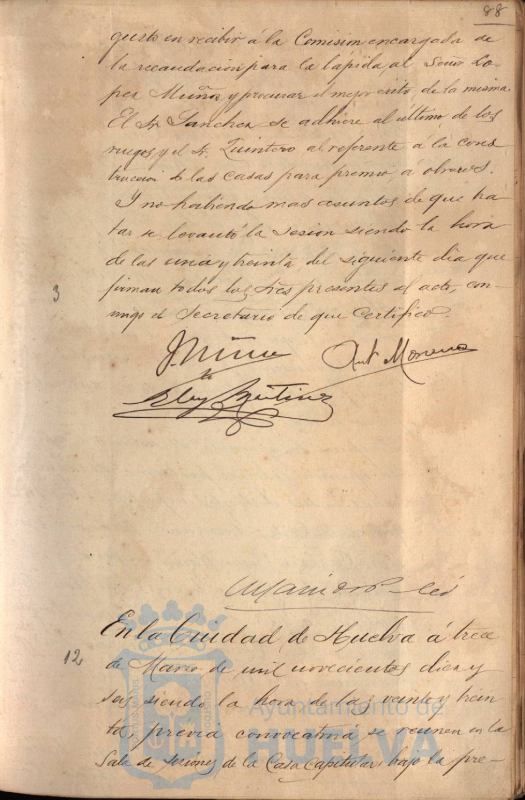 88
gusto en recibir á la Comision encargada de
la recaudacion para la lápida al Señor Lo-
pez Muñoz y procurar el mejor exito de la misma.
El Sr. Sanchez se adhiere al último de los
ruegos y el Sr. Quintero al referente á la cons
trucción de las casas para premio á obreros.
Y no habiendo mas asuntos de que tra
tar se levantó la sesion siendo la hora
de las una y treinta del siguiente dia que
firman todos los Sres presentes al acto, con-
3
migo el Secretario de que certifico.
Ant Moreno
En la Ciudad de Huelva á trece
12
de Marzo de mil novecientos diez y
seis siendo la hora de las veinte y trein
ta, previa convocatoria se reunen en la
Sala de Sesiones de la Casa Capitular bajo la pre-
Ayuntamiento de
HUELVA